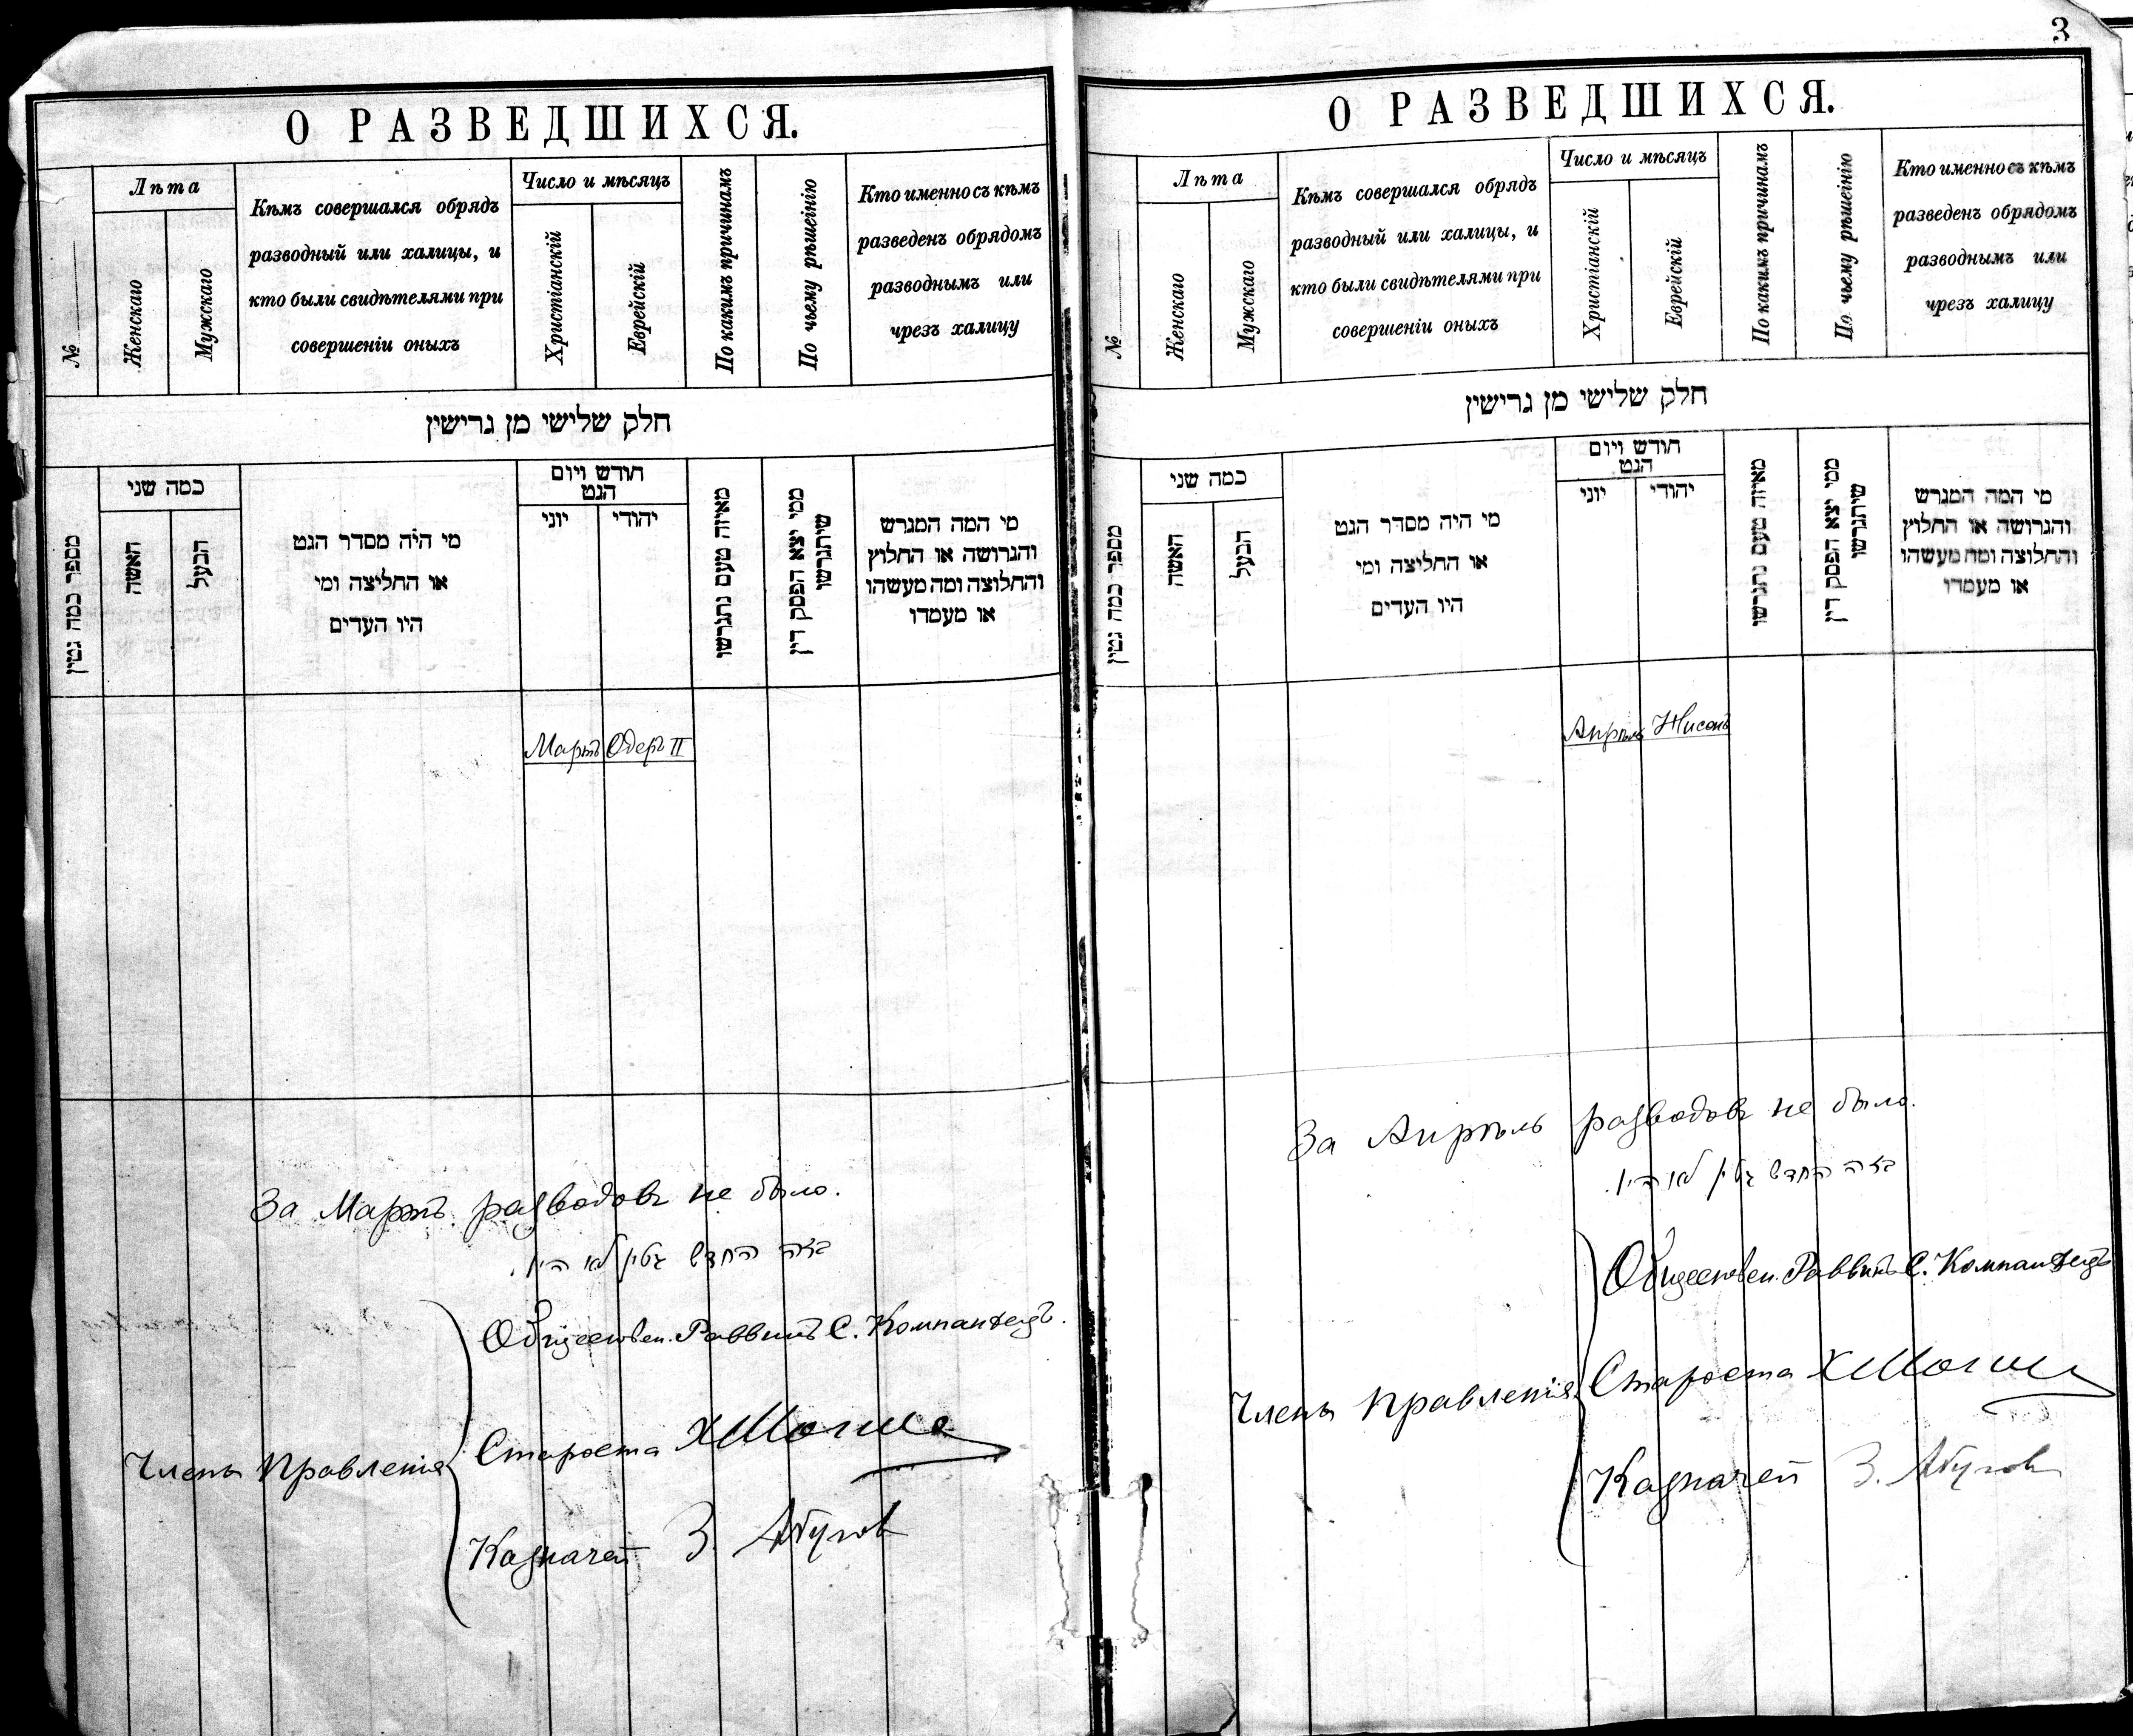 О РАЗВЕДШИХСЯ.
№
Лѣта
Женскаго
Мужскаго
Кѣмъ совершался обрядъ
разводный или халицы, и
кто были свидѣтелями при
совершеніи оныхъ
Число и мѣсяцъ
Христіанскій
Еврейскій
По какимъ причинамъ
По чьему рѣшенію
Кто именно съ кѣмъ
разведенъ обрядомъ
разводнымъ или
чрезъ халицу
חלק שלישי מן גרישין
מספר כמה גטין
כמה שני
האשה
הבעל
מי היה מסדר הגט
או החליצה ומי
היו העדים
חודש ויום
הגט
יוני
יהודי
מאיזה טעם נתגרשו
ממי יצא הפסק דין
שיתגרשו
מי המה המגרש
והגרושה או החלוץ
והחלוצה ומה מעשהו
או מעמדו
Мартъ Одеръ II
За Мартъ разводовъ не было.
בזה החדש גטין לא היו.
Обществен. Раввинъ С. Компанѣецъ.
Члены Правленія
Староста
Казначей З.
3
О РАЗВЕДШИХСЯ.
№
Лѣта
Женскаго
Мужскаго
Кѣмъ совершался обрядъ
разводный или халицы, и
кто были свидѣтелями при
совершеніи оныхъ
Число и мѣсяцъ
Христіанскій
Еврейскій
По какимъ причинамъ
По чьему рѣшенію
Кто именно съ кѣмъ
разведенъ обрядомъ
разводнымъ или
чрезъ халицу
חלק שלישי מן גרישין
מספר כמה גטין
כמה שני
האשה
הבעל
מי היה מסדר הגט
או החליצה ומי
היו העדים
חודש ויום
הגט
יוני
יהודי
מאיזה טעם נתגרשו
ממי יצא הפסק דין
שיתגרשו
מי המה המגרש
והגרושה או החלוץ
והחלוצה ומה מעשהו
או מעמדו
Апрѣль Нисонъ
За Апрѣль разводовъ не было.
בזה החדש גטין לא היו.
Обществен. Раввинъ С. Компанѣецъ
Члены Правленія
Староста
Казначей З.